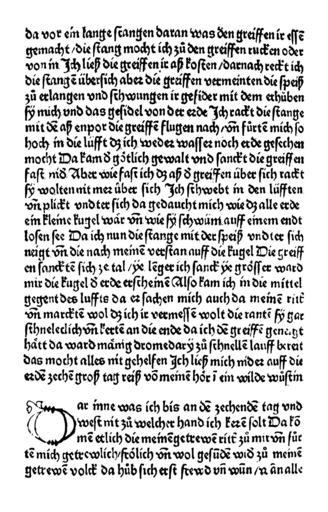 da vor ein lange stangen daran was den greiffen ir essē
gemacht/die stang mocht ich zů den greiffen rucken oder
von in Ich ließ die greiffen ir aß kosten/darnach reckt ich
die stangē übersich aber die greiffen vermeinten die speiß
zů erlangen vnd schwungen ir gefider mit dem erhůben
sy mich vnd das gesidel von der erde Ich rackt die stange
mit dē aß enpor die greiffē flugen nach/vn̄ fürtē mich so
hoch in die lüfft dz ich weder wasser noch erde gesehen
mocht Da kam d götlich gewalt vnd sanckt die greiffen
fast nid Aber wie fast ich dz aß d greiffen über sich rackt
sy wolten mit mer über sich Ich schwebt in den lüfften
vn̄ plickt vnder sich da gedaucht mich wie dz alle erde
ein kleine kugel wär vn̄ wie sy schwām auff einem endt
losen see Da ich nun die stange mit der speiß vnder sich
neigt vn̄ die nach meinē verstan auff die kugel Die greiff
en sancktē sich ze tal/ye leger ich sanck ye grösser ward
mir die kugel d erde erscheinē Also kam ich in die mittel
gegent des luffts da ersachen mich auch da meinē ritt
vn̄ marcktē wol dz ich ir vermessē wolt die rantē sy gar
schnelcklich vn̄ kertē an die ende da ich dē greiffē genaigt
hätt da ward mānig dromedary zů schnellē lauff bereit
das mocht alles nit gehelfen Ich ließ mich nider auff die
erdē zechē groß tag reiß vō meinē hör ī ein wilde wůstin
ar inne was ich bis an dē zechenden tag vnd
west nit zů welcher hand ich kerē solt Da kō
mē etlich die meinē getrewen ritt zů mir vn̄ für
tē mich getrewlich/frölich vn̄ wol gesūd wid zů meinē
getrewen volck da hůb sich erst frewd vn̄ wūn/ an alle